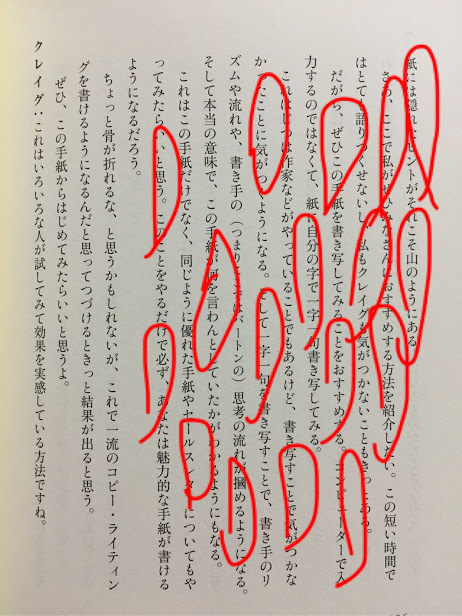 紙には隠れたヒントがそれこそ山のようにある
さて、ここで私がぜひみなさんにおすすめする方法を紹介したい。この短い時間で
はとても語りつくせないし、私もクレイグも気がつかないこともきっとある。
だから、ぜひこの手紙を書き写してみることをおすすめする。コンピューターで入
力するのではなくて、紙に自分の字で一字一句書き写してみる。
これはじつは作家などがやっていることでもあるけど、書き写すことで気がつかな
かったことに気がつくようになる。そして一字一句を書き写すことで、書き手のリ
ズムや流れや、書き手の（つまりここではバートンの）思考の流れが摑めるようになる。
そして本当の意味で、この手紙が何を言わんとしていたかがわかるようにもなる。
これはこの手紙だけでなく、同じように優れた手紙やセールスレターについてもや
ってみたらいいと思う。このことをやるだけで必ず、あなたは魅力的な手紙が書ける
ようになるだろう。
ちょっと骨が折れるな、と思うかもしれないが、これで一流のコピー・ライティン
グを書けるようになるんだと思ってつづけるときっと結果が出ると思う。
ぜひ、この手紙からはじめてみたらいいと思うよ。
クレイグ：これはいろいろな人が試してみて効果を実感している方法ですね。